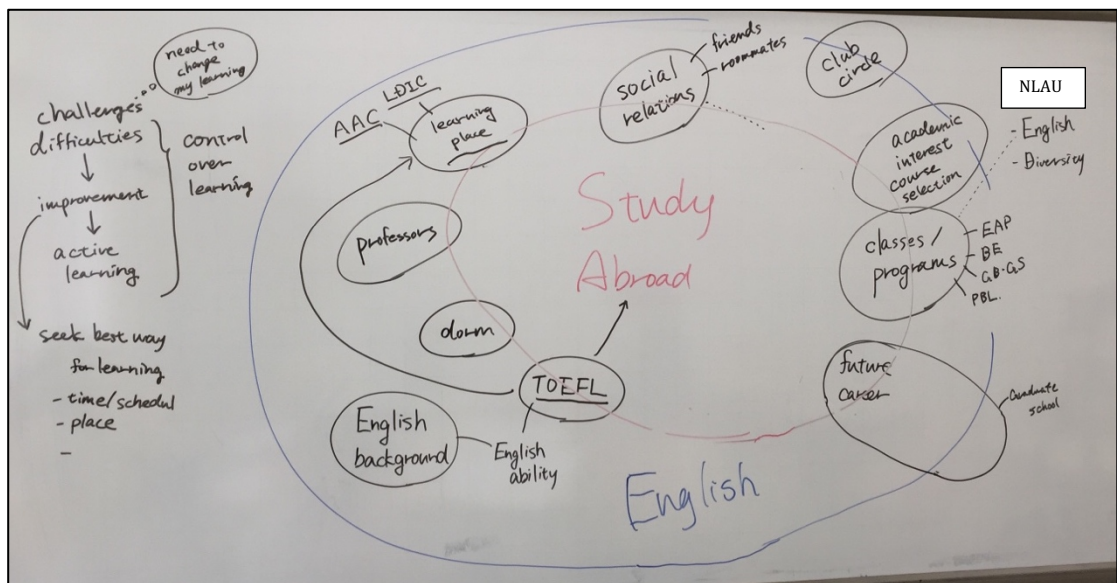 need to
change
my learning
challenges
difficulties
improvement
active
learning
control
over
learning
seek best way
for learning
- time/schedul
- place
-
AAC
LDIC
learning
place
professors
dorm
TOEFL
English
background
English
ability
social
relations
friends
roommates
Study
Abroad
English
club
circle
NLAU
- English
- Diversity
academic
interest
course
selection
classes/
programs
- EAP
- BE
GB・GS
PBL.
future
career
Graduate
school